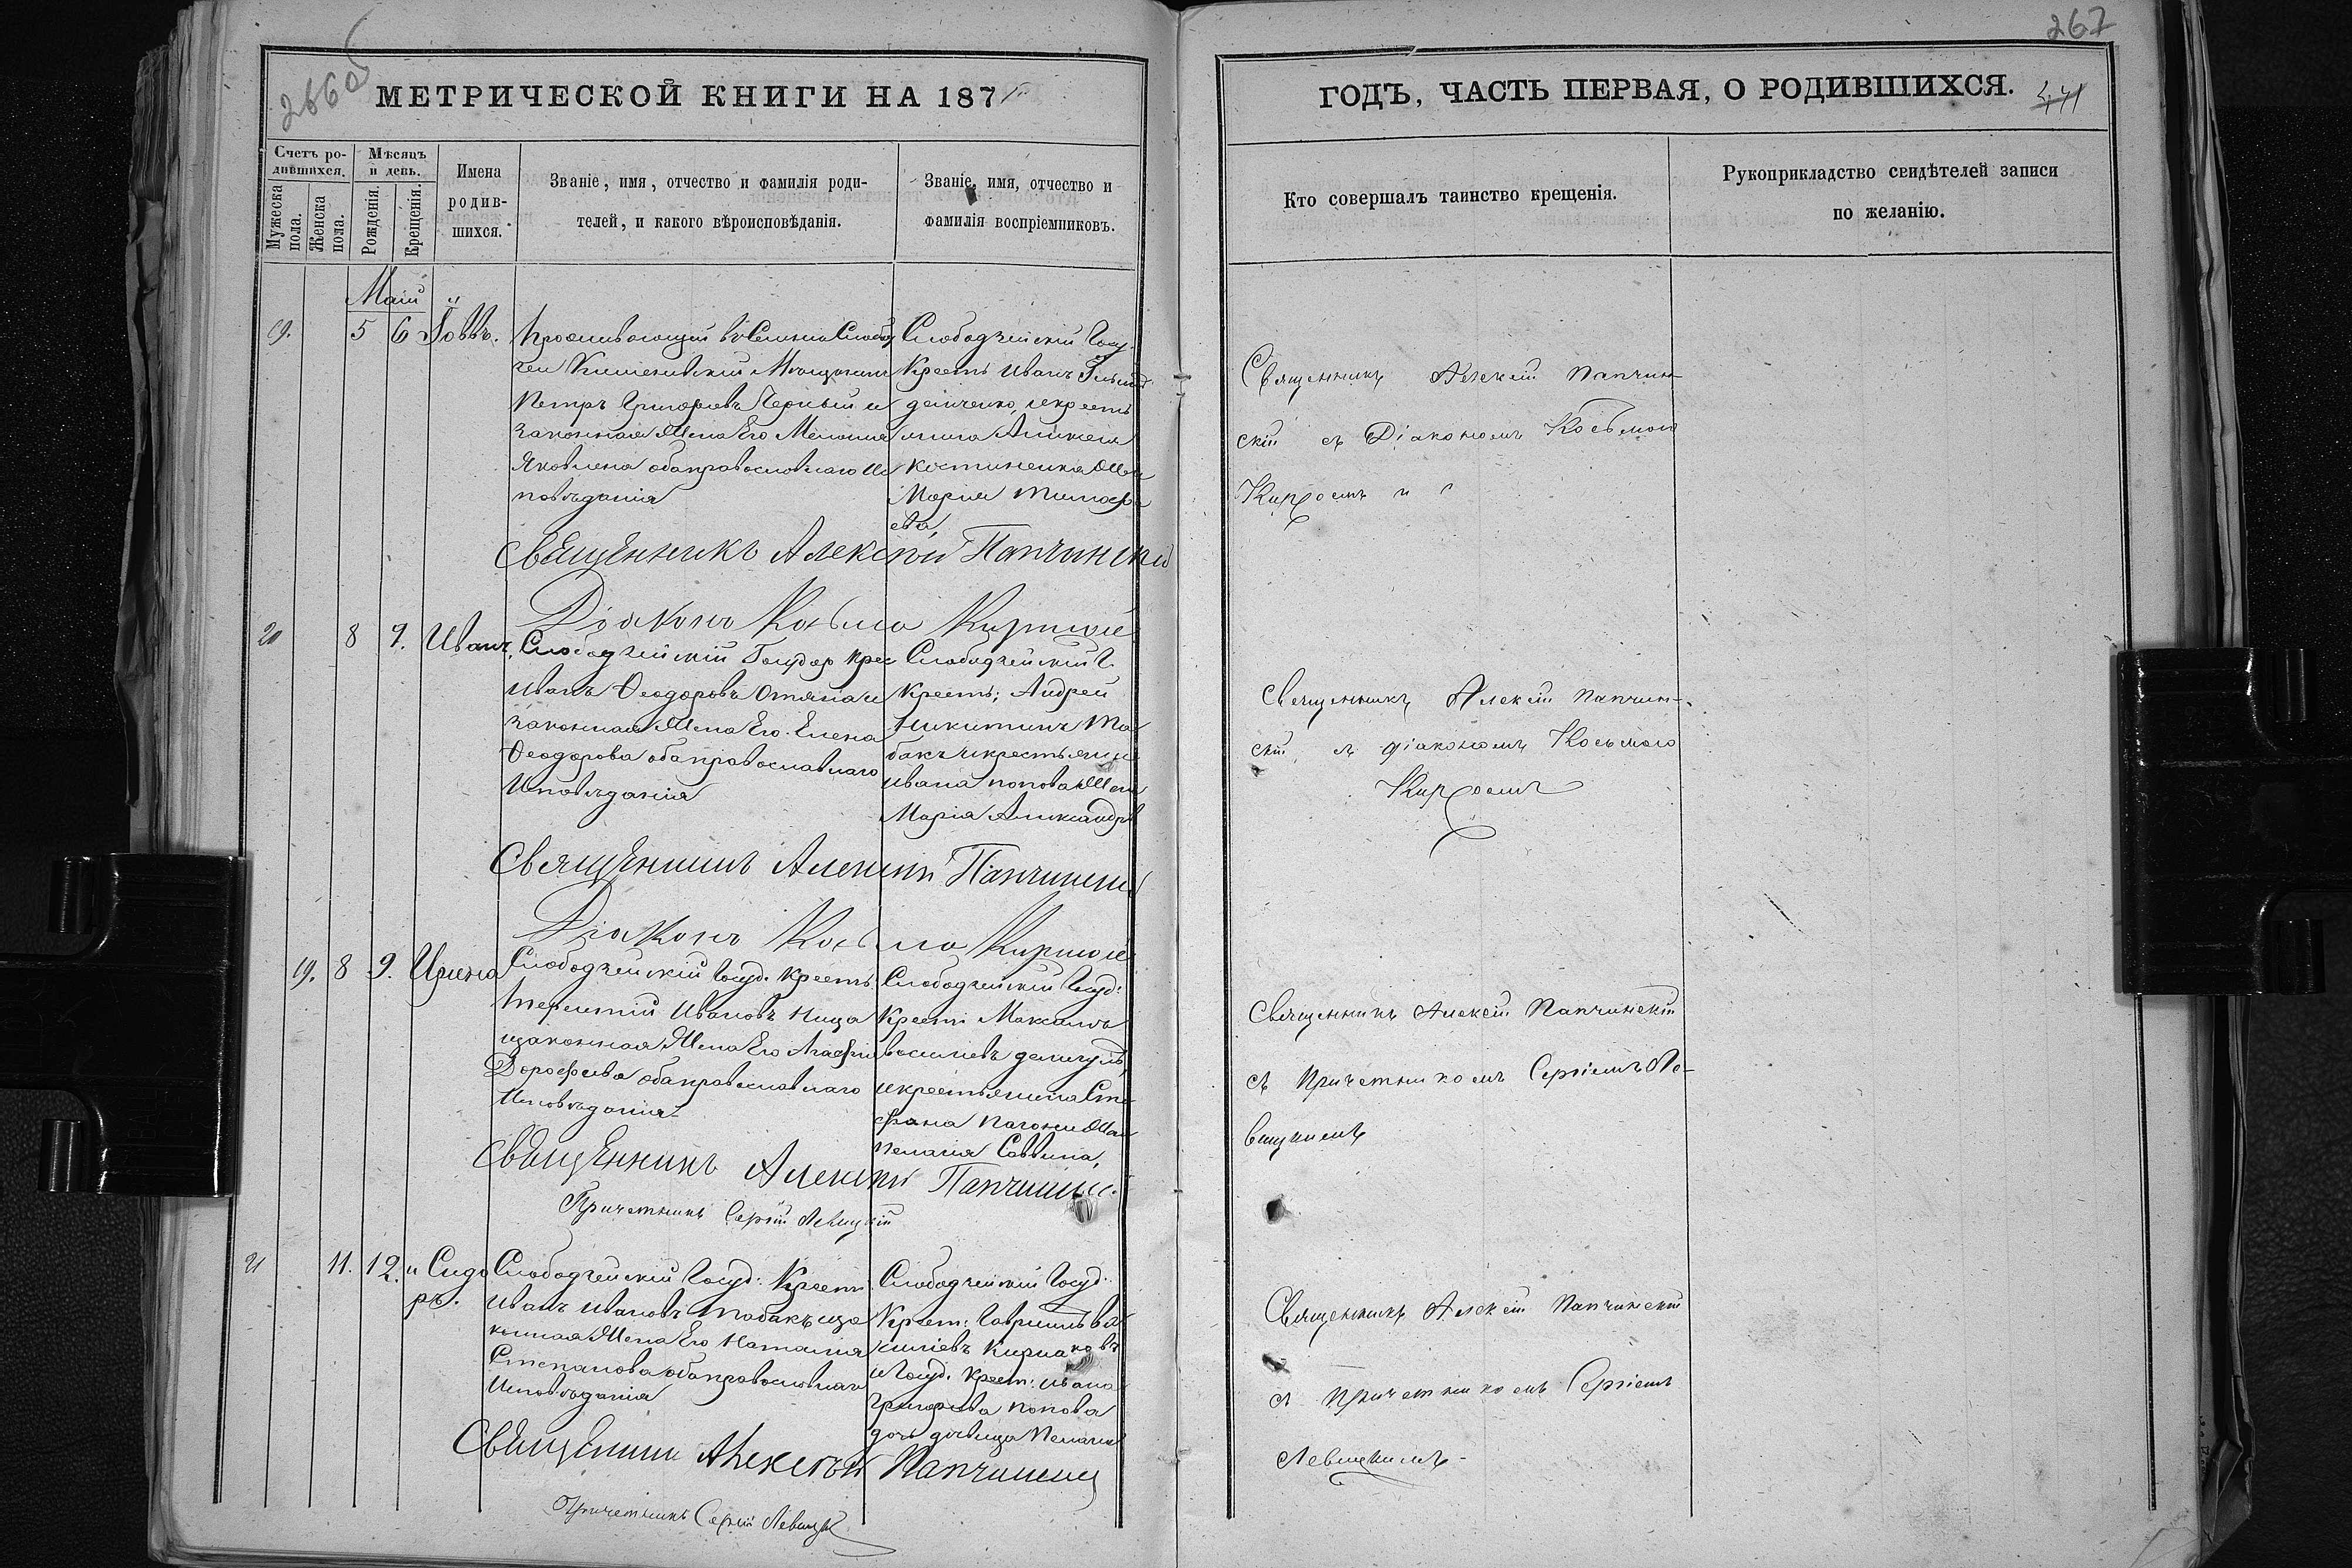 266об
МЕТРИЧЕСКОЙ КНИГИ НА 187
Счетъ ро-
дившихся.
Мужеска
пола.
Женска
пола.
Мѣсяцъ
и день.
Рожденія.
Крещенія.
Имена
родив-
шихся.
Званіе, имя, отчество и фамилія роди-
телей, и какого вѣроисповѣданія.
Званіе, имя, отчество и
фамилія воспріемниковъ.
Маій
19. 5 6 Іоввъ.
Проживающій въ Селеніи Слобод
зеи Кишеневскій Мѣщанинъ
Петръ Григорьевъ Черный и
законная Жена Его Меланія
Яковлева оба православнаго Ис
повѣданія
Слободзейскій Госу
Крестъ Иванъ
дейченко, и крестъ
янина Аликсея
Костиненка Жен
Марія Тимоф
ева,
Священникъ Алексѣй Папчинскій
Діаконъ Косьма
20 8 9. Иванъ.
Слободзейскій Государ Крес
Иванъ Ѳеодоровъ Отяпа и
законная Жена Его Елена
Ѳеодорова оба православнаго
Исповѣданія
Слободзейскій Г.
Крестъ; Андрей
Никитинъ Та
бакъ и крестьянин
Ивана Попова Жена
Марія Александр
Священникъ Алексѣй Папчинскій
Діаконъ Косьма
19. 8 9. Ирина
Слободзейскій Госуд. Крестъ
Терентій Ивановъ Ница
и законная Жена Его Агафія
Дорофеева оба православнаго
Исповѣданія
Слободзейскій Госуд:
Крестъ Максимъ
Василіевъ
и крестьянина Сте
фана Жена
Пелагія Саввина,
Священникъ Алексѣй Папчинскій.
Причетникъ Сергій Левицкій
21 11. 12. Сидо
ръ.
Слободзейскій Госуд: Крестъ
Иванъ Ивановъ Табакъ и за
конная Жена Его Наталія
Степанова оба православнаго
Исповѣданія
Слободзейскій Госуд:
Крест: Гавріилъ Ва
силіевъ Кирияковъ
и Госуд. Крест: Ивана
Григорьева Попова
дочь дѣвица Пелагія
Священникъ Алексѣй Папчинскій
Причетникъ Сергій Левицкій
267
ГОДЪ, ЧАСТЬ ПЕРВАЯ, О РОДИВШИХСЯ.
Кто совершалъ таинство крещенія.
Рукоприкладство свидѣтелей записи
по желанію.
Священникъ Алексій Папчин-
скій съ Діакономъ Косьмою
Священникъ Алексій Папчин-
скій, съ діакономъ Косьмою
Священникъ Алексій Папчинскій
съ Причетникомъ Сергіемъ Ле-
вицкимъ
Священникъ Алексій Папчинскій
съ Причетникомъ Сергіемъ
Левицкимъ-